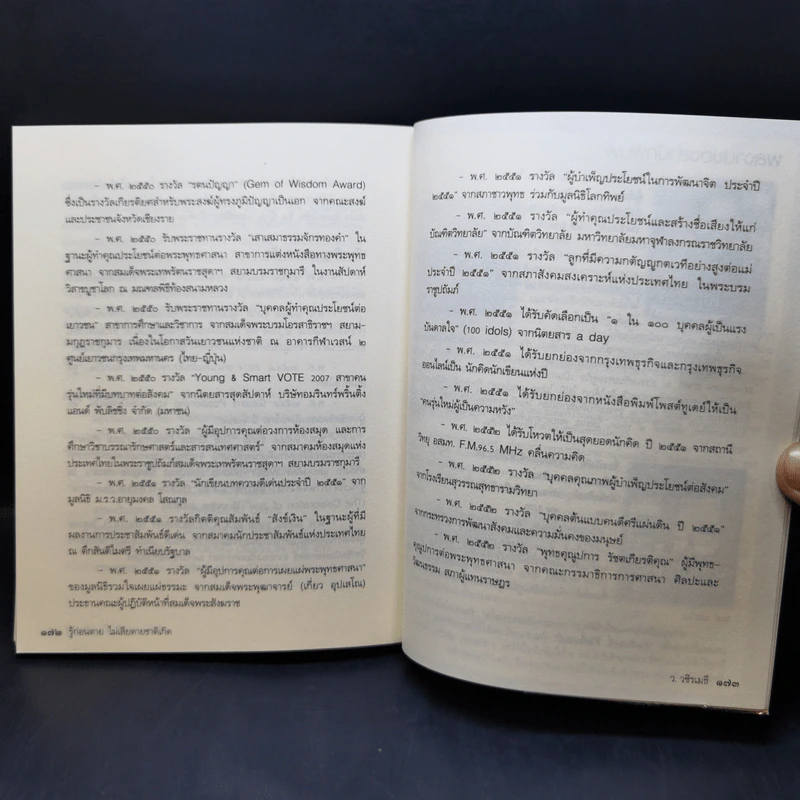 - พ.ศ. ๒๕๕๐ รางวัล "รตนปัญญา" (Gem of Wisdom Award)
ซึ่งเป็นรางวัลเกียรติยศสำหรับพระสงฆ์ผู้ทรงภูมิปัญญาเป็นเอก จากคณะสงฆ์
และประชาชนจังหวัดเชียงราย
- พ.ศ. ๒๕๕๐ รับพระราชทานรางวัล "เสาเสมาธรรมจักรทองคำ" ใน
ฐานะผู้ทำคุณประโยชน์ต่อพระพุทธศาสนา สาขาการแต่งหนังสือทางพระพุทธ
ศาสนา จากสมเด็จพระเทพรัตนราชสุดาฯ สยามบรมราชกุมารี ในงานสัปดาห์
วิสาขบูชาโลก ณ มณฑลพิธีท้องสนามหลวง
- พ.ศ. ๒๕๕๐ รับพระราชทานรางวัล "บุคคลผู้ทำคุณประโยชน์ต่อ
เยาวชน" สาขาการศึกษาและวิชาการ จากสมเด็จพระบรมโอรสาธิราชฯ สยาม-
มกุฎราชกุมาร เนื่องในโอกาสวันเยาวชนแห่งชาติ ณ อาคารกีฬาเวสน์ ๒
ศูนย์เยาวชนกรุงเทพมหานคร (ไทย-ญี่ปุ่น)
- พ.ศ. ๒๕๕๐ รางวัล "Young & Smart VOTE 2007 สาขาคน
รุ่นใหม่ที่มีบทบาทต่อสังคม" จากนิตยสารสุดสัปดาห์ บริษัทอมรินทร์พริ้นติ้ง
แอนด์ พับลิชชิ่ง จำกัด (มหาชน)
- พ.ศ. ๒๕๕๐ รางวัล "ผู้มีอุปการคุณต่อวงการห้องสมุด และการ
ศึกษาวิชาบรรณารักษศาสตร์และสารสนเทศศาสตร์" จากสมาคมห้องสมุดแห่ง
ประเทศไทยในพระราชูปถัมภ์สมเด็จพระเทพรัตนราชสุดาฯ สยามบรมราชกุมารี
- พ.ศ. ๒๕๕๑ รางวัล "นักเขียนบทความดีเด่นประจำปี ๒๕๕๑" จาก
มูลนิธิ ม.ร.ว.อายุมงคล โสณกุล
- พ.ศ. ๒๕๕๑ รางวัลกิตติคุณสัมพันธ์ "สังข์เงิน" ในฐานะผู้ที่มี
ผลงานการประชาสัมพันธ์ดีเด่น จากสมาคมนักประชาสัมพันธ์แห่งประเทศไทย
ณ ตึกสันติไมตรี ทำเนียบรัฐบาล
- พ.ศ. ๒๕๕๑ รางวัล "ผู้มีอุปการคุณต่อการเผยแผ่พระพุทธศาสนา"
ของมูลนิธิรวมใจเผยแผ่ธรรมะ จากสมเด็จพระพุฒาจารย์ (เกี่ยว อุปเสโณ)
ประธานคณะผู้ปฏิบัติหน้าที่สมเด็จพระสังฆราช
๑๗๒ รู้ก่อนตาย ไม่เสียดายชาติเกิด
- พ.ศ. ๒๕๕๑ รางวัล "ผู้บำเพ็ญประโยชน์ในการพัฒนาจิต ประจำปี
๒๕๕๑" จากสภาชาวพุทธ ร่วมกับมูลนิธิโลกทิพย์
- พ.ศ. ๒๕๕๑ รางวัล "ผู้ทำคุณประโยชน์และสร้างชื่อเสียงให้แก่
บัณฑิตวิทยาลัย" จากบัณฑิตวิทยาลัย มหาวิทยาลัยมหาจุฬาลงกรณราชวิทยาลัย
- พ.ศ. ๒๕๕๑ รางวัล "ลูกที่มีความกตัญญูกตเวทีอย่างสูงต่อแม่
ประจำปี ๒๕๕๑" จากสภาสังคมสงเคราะห์แห่งประเทศไทย ในพระบรม
ราชูปถัมภ์
- พ.ศ. ๒๕๕๑ ได้รับคัดเลือกเป็น "๑ ใน ๑๐๐ บุคคลผู้เป็นแรง
บันดาลใจ" (100 idols) จากนิตยสาร a day
- พ.ศ. ๒๕๕๑ ได้รับยกย่องจากกรุงเทพธุรกิจและกรุงเทพธุรกิจ
ออนไลน์เป็น นักคิดนักเขียนแห่งปี
- พ.ศ. ๒๕๕๑ ได้รับยกย่องจากหนังสือพิมพ์โพสต์ทูเดย์ให้เป็น
"คนรุ่นใหม่ผู้เป็นความหวัง"
- พ.ศ. ๒๕๕๒ ได้รับโหวตให้เป็นสุดยอดนักคิด ปี ๒๕๕๑ จากสถานี
วิทยุ อสมท. F.M.96.5 MHz คลื่นความคิด
- พ.ศ. ๒๕๕๒ รางวัล "บุคคลคุณภาพผู้บำเพ็ญประโยชน์ต่อสังคม"
จากโรงเรียนสุวรรณสุทธารามวิทยา
- พ.ศ. ๒๕๕๒ รางวัล "บุคคลต้นแบบคนดีศรีแผ่นดิน ปี ๒๕๕๑"
จากกระทรวงการพัฒนาสังคมและความมั่นคงของมนุษย์
- พ.ศ. ๒๕๕๒ รางวัล "พุทธคุณูปการ รัชตเกียรติคุณ" ผู้มีพุทธ-
คุณูปการต่อพระพุทธศาสนา จากคณะกรรมาธิการการศาสนา ศิลปะและ
วัฒนธรรม สภาผู้แทนราษฎร
ว. วชิรเมธี ๑๗๓